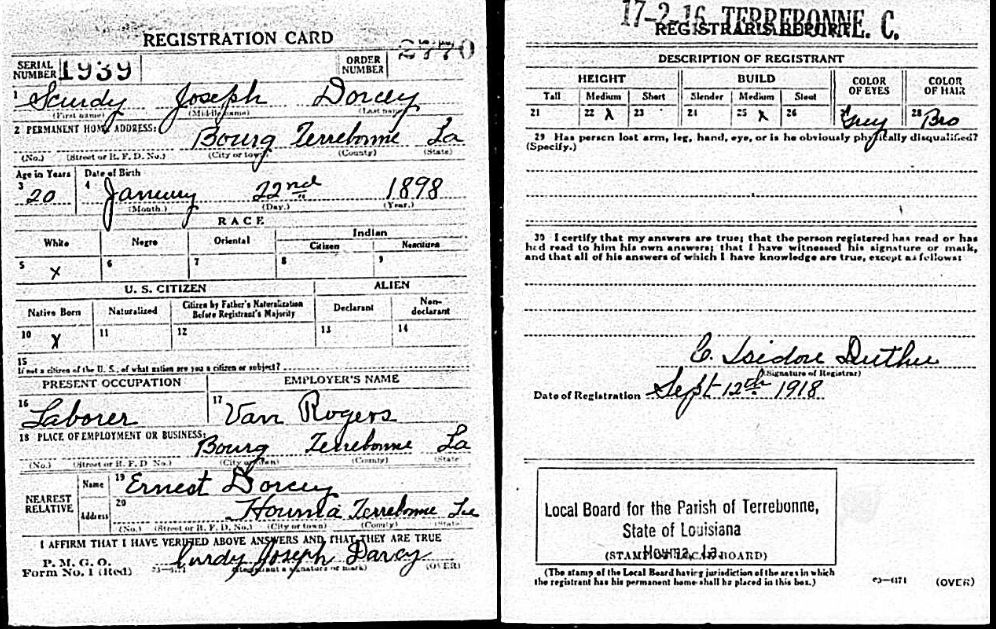 REGISTRATION CARD
SERIAL NUMBER 1939 ORDER NUMBER 2770
1 Scurdy Joseph Dorcey
(First name) (Middle name) (Last name)
2 PERMANENT HOME ADDRESS: Bourg Terrebonne La
(No.) (Street or R. F. D. No.) (City or town) (County) (State)
Age in Years Date of Birth
3 20 4 January 22nd 1898
(Month.) (Day.) (Year.)
RACE
White Negro Oriental Indian
Citizen Noncitizen
5 X 6 7 8 9
U. S. CITIZEN ALIEN
Native Born Naturalized Citizen by Father's Naturalization Before Registrant's Majority Declarant Non-declarant
10 X 11 12 13 14
15
If not a citizen of the U. S., of what nation are you a citizen or subject?
PRESENT OCCUPATION EMPLOYER'S NAME
16 Laborer 17 Van Rogers
18 PLACE OF EMPLOYMENT OR BUSINESS: Bourg Terrebonne La
(No.) (Street or R. F. D. No.) (City or town) (County) (State)
NEAREST RELATIVE Name 19 Ernest Dorcey
Address 20 Houma Terrebonne La
(No.) (Street or R. F. D. No.) (City or town) (County) (State)
I AFFIRM THAT I HAVE VERIFIED ABOVE ANSWERS AND THAT THEY ARE TRUE
P. M. G. O.
Form No. 1 (Red) Joseph Darcy
(Registrant's signature or mark) (OVER)
17-2-16 TERREBONNE. C.
REGISTRAR'S REPORT
DESCRIPTION OF REGISTRANT
HEIGHT BUILD COLOR OF EYES COLOR OF HAIR
Tall Medium Short Slender Medium Stout
21 22 X 23 24 25 X 26 Grey 28 Bro
29 Has person lost arm, leg, hand, eye, or is he obviously physically disqualified?
(Specify.)
30 I certify that my answers are true; that the person registered has read or has
had read to him his own answers; that I have witnessed his signature or mark,
and that all of his answers of which I have knowledge are true, except as follows:
C. Isidore Duthu
(Signature of Registrar)
Date of Registration Sept 12th 1918
Local Board for the Parish of Terrebonne,
State of Louisiana
Houma, La.
(STAMP OF LOCAL BOARD)
(The stamp of the Local Board having jurisdiction of the area in which
the registrant has his permanent home shall be placed in this box.)
(OVER)